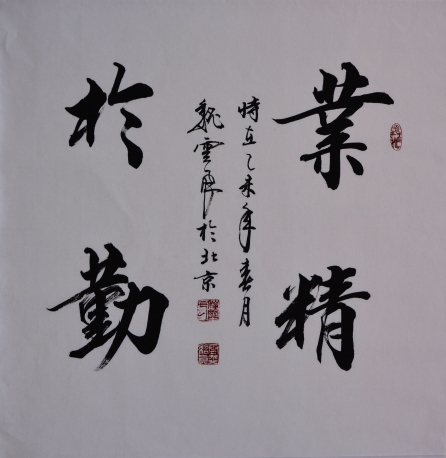 業精
於勤
時在乙未年春月
魏雲飛於北京